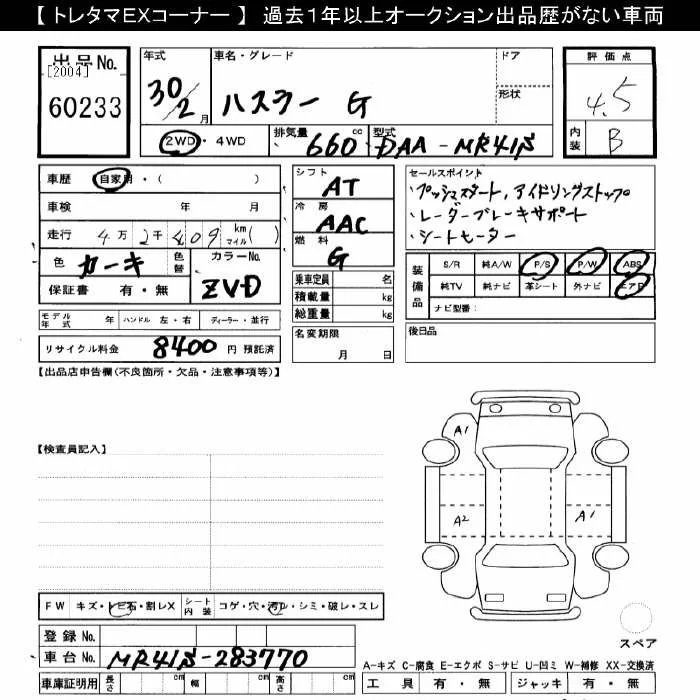 【 トレタマEXコーナー 】 過去1年以上オークション出品歴がない車両
出品No.
[2004]
60233
年式
30/2月
車名・グレード
ハスラー G
ドア
形状
2WD・4WD
排気量 660 cc
型式 DAA-MR41S
評価点
4.5
内装 B
車歴 自家用・( )
車検 年 月
走行 4万2千409 km マイル( )
色 カーキ 色替
カラーNo. ZVD
保証書 有・無
シフト
AT
冷房
AAC
燃料
G
乗車定員 名
積載量 kg
総重量 kg
名変期限
月 日
セールスポイント
・プッシュスタート,アイドリングストップ
・レーダーブレーキサポート
・シートヒーター
装備品
S/R 純A/W P/S P/W ABS
純TV 純ナビ 革シート 外ナビ エアB
ナビ型番:
後日品
モデル年式 年 ハンドル 左・右 ディーラー・並行
リサイクル料金 8400 円 預託済
【出品店申告欄(不良箇所・欠品・注意事項等)】
【検査員記入】
A1
A2
A1
FW キズ・トビ石・割レX
シート内装 コゲ・穴・汚レ・シミ・破レ・スレ
登録No.
車台No. MR41S-283770
車庫証明用 長さ cm 幅 cm 高さ cm
スペア
A-キズ C-腐食 E-エクボ S-サビ U-凹ミ W-補修 XX-交換済
工具 有・無 ジャッキ 有・無